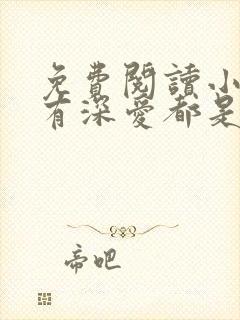 免費閱讀小
有深愛都是
帝吧